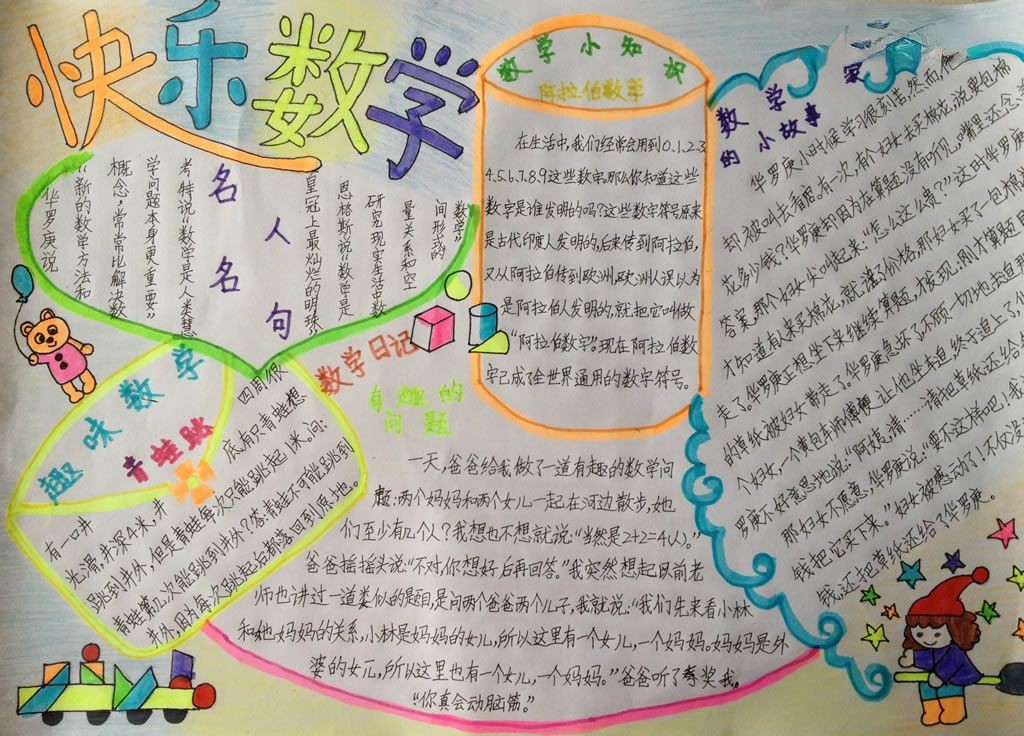 快乐数学
名人名句
华罗庚说
“新的数学方法和
概念,常常比解决数
学问题本身更重要”
考特说“数学是人类慧
皇冠上最灿烂的明珠
恩格斯说“数学是
研究现实生活中数
量关系和空
间形式的
数学”
数学小知识
阿拉伯数学
在生活中,我们经常会用到0.1.2.3
4.5.6.7.8.9这些数字。那么你知道这些
数字是谁发明的吗?这些数字符号原来
是古代印度人发明的,后来传到阿拉伯,
又从阿拉伯传到欧洲,欧洲人误以为
是阿拉伯人发明的,就把它叫做
“阿拉伯数字”。现在阿拉伯数
字已成了全世界通用的数字符号。
数学家
的小故事
华罗庚小时候学习很刻苦,然而,
却被叫去看店。有一次,有个妇女去买棉花,说要包棉
花多少钱?华罗庚却因为在算题没有听见,嘴里还念
答案,那个妇女尖叫起来:“怎么这么贵?”这时华罗庚
才知道有人来买棉花,就说了价格,那妇女买了一包棉花
走了。华罗庚正想坐下来继续算题,才发现,刚才算题用
的草纸被妇女带走了。华罗庚急坏了,不顾一切地去追那
个妇女,一个黄包车师傅便让他坐车追,终于追上了,华
罗庚不好意思地说:“阿姨,请……请把草纸还给
那妇女不愿意,华罗庚说:“要不这样吧!我
钱把它买下来。”妇女被感动了!不仅没
钱,还把草纸还给了华罗庚。
趣味数学
青蛙跳
有一口井
四周很
光滑,井深4米,井
底有只青蛙想
跳到井外,但是青蛙每次只能跳起1米。问:
青蛙第几次能跳到井外?答:青蛙不可能跳到
井外,因为每次跳起后都落回到原地。
数学日记
有趣的
问题
一天,爸爸给我做了一道有趣的数学问
题:两个妈妈和两个女儿一起在河边散步,她
们至少有几个人?我想也不想就说:“当然是2+2=4(人)。”
爸爸摇摇头说:“不对,你想好后再回答。”我突然想起以前老
师也讲过一道类似的题目,是问两个爸爸两个儿子,我就说:“我们先来看小林
和她妈妈的关系,小林是妈妈的女儿,所以这里有一个女儿,一个妈妈。妈妈是外
婆的女儿,所以这里也有一个女儿,一个妈妈。”爸爸听了夸奖我,
“你真会动脑筋。”